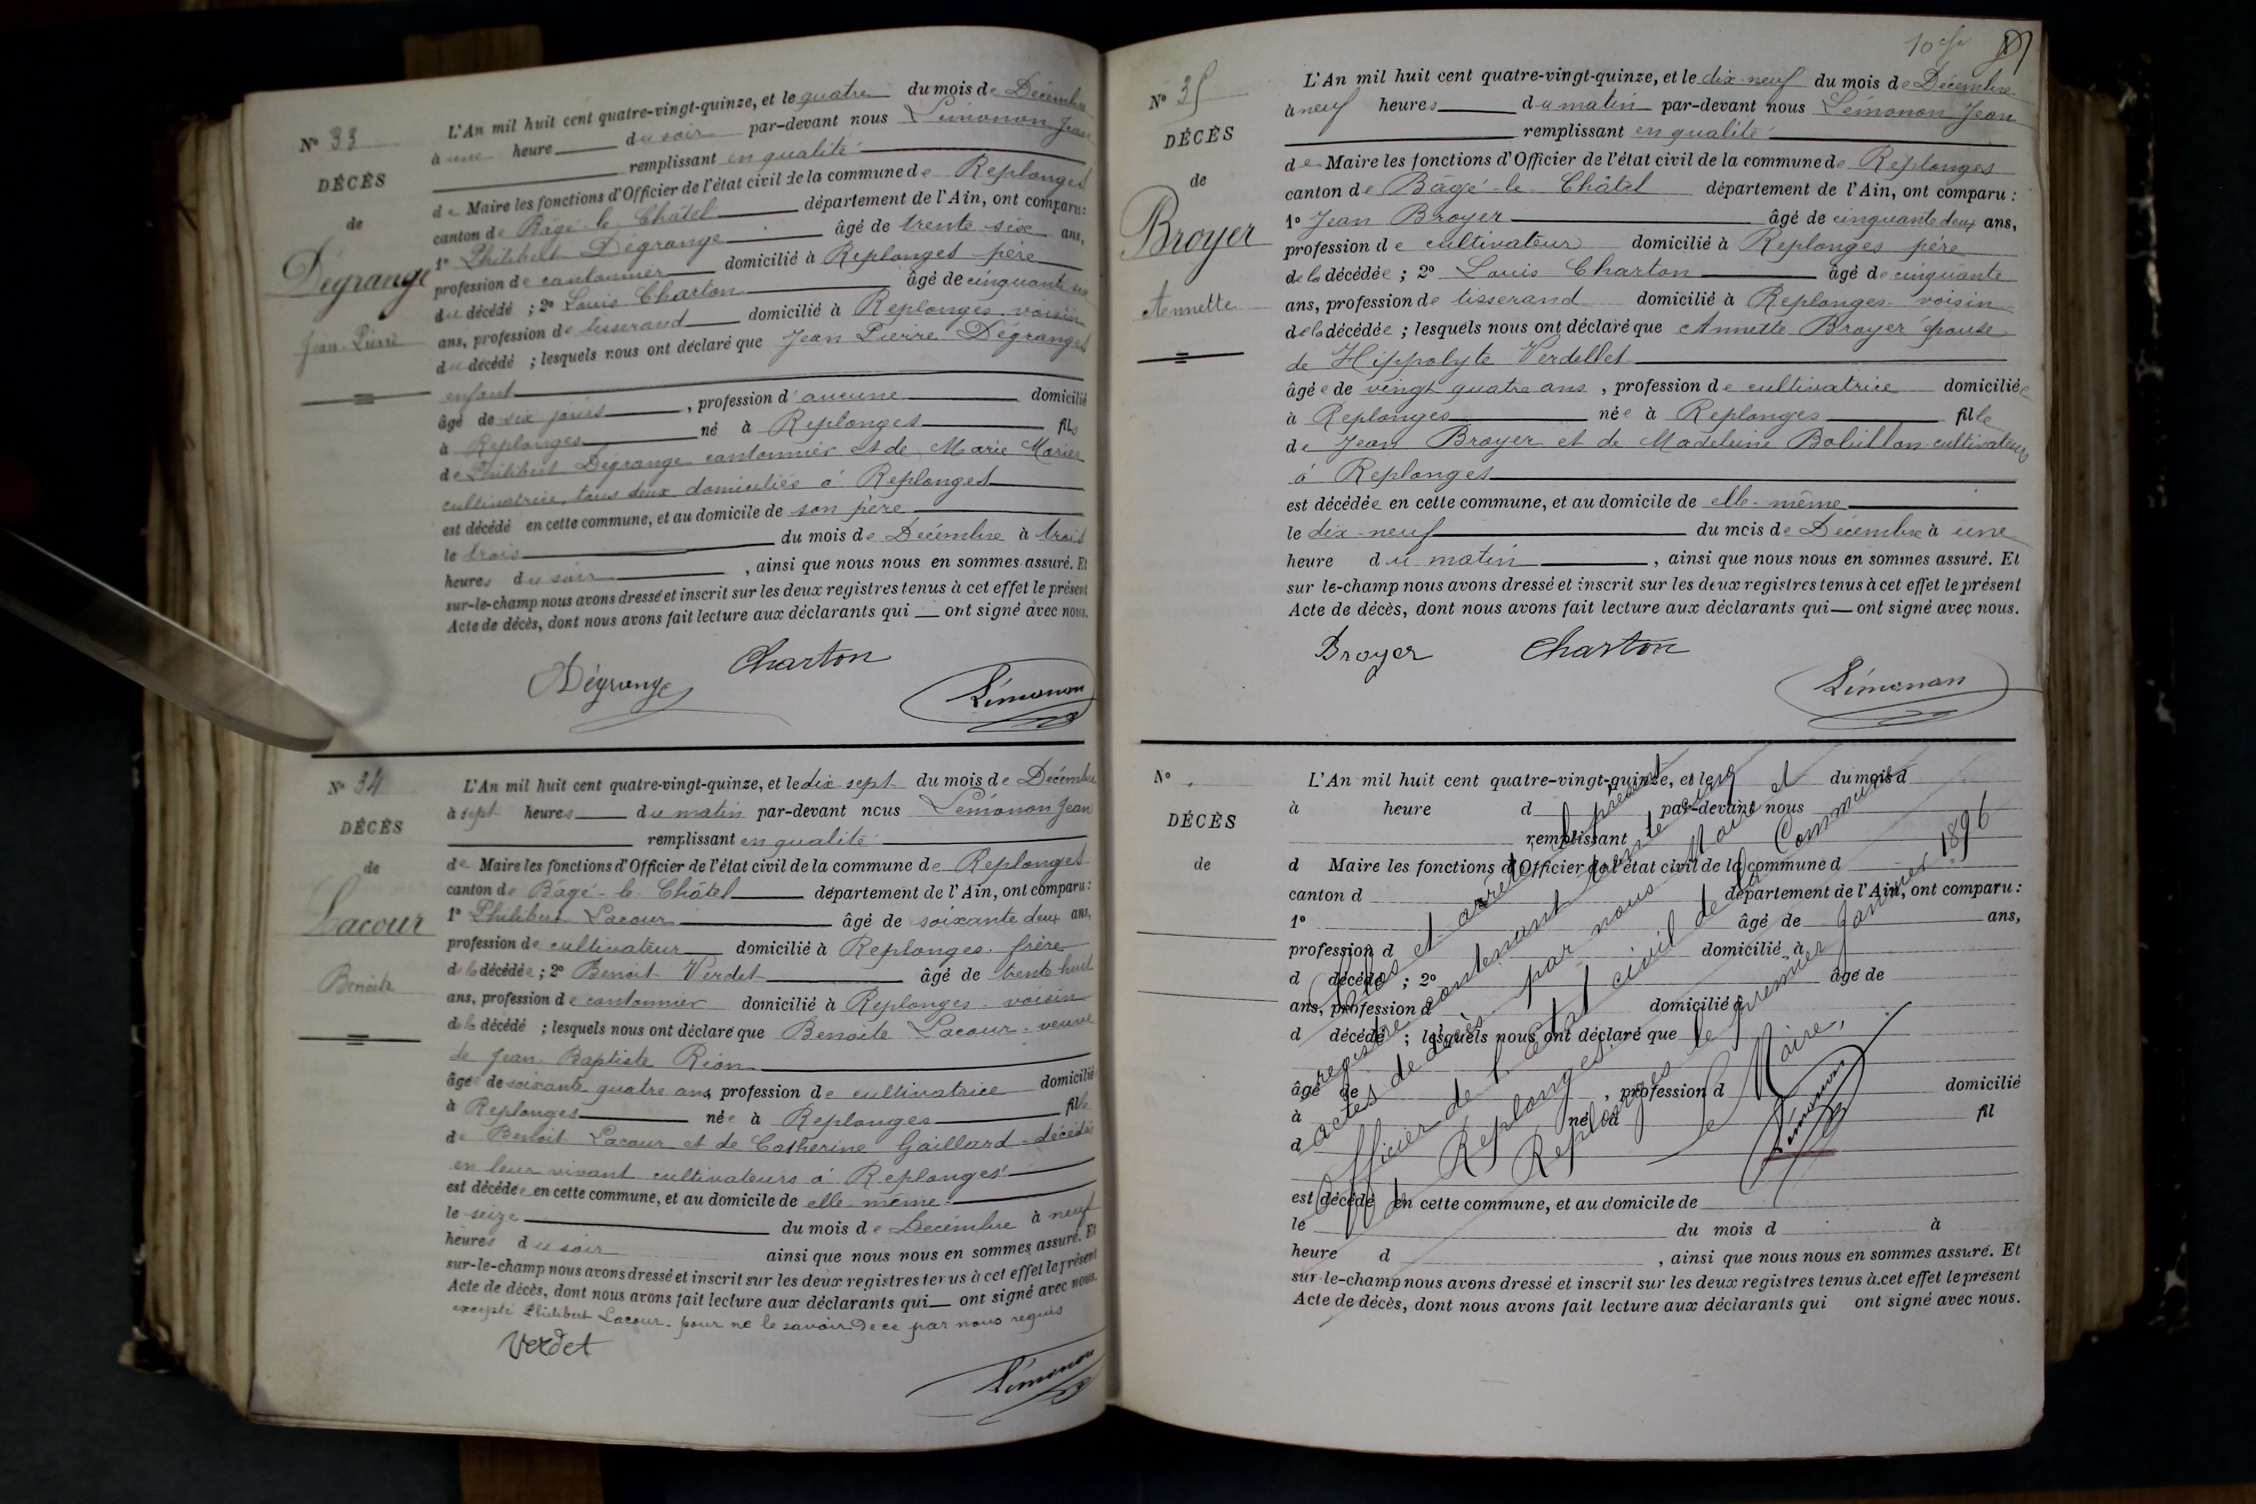 N° 33
DÉCÈS
de
Dégrange
Jean-Pierre
L'An mil huit cent quatre-vingt-quinze, et le quatre du mois de Décembre
à une heure du soir par-devant nous Lémonon Jean
remplissant en qualité
de Maire les fonctions d'Officier de l'état civil de la commune de Replonges
canton de Bâgé-le-Châtel département de l'Ain, ont comparu:
1° Philibert Dégrange âgé de trente six ans,
profession de cantonnier domicilié à Replonges père
du décédé ; 2° Louis Charton âgé de cinquante
ans, profession de tisserand domicilié à Replonges voisin
du décédé ; lesquels nous ont déclaré que Jean Pierre Dégranges
enfant
âgé de six jours, profession d'aucune domicilié
à Replonges né à Replonges fils
de Philibert Dégrange cantonnier et de Marie Marier
cultivatrice, tous deux domiciliés à Replonges
est décédé en cette commune, et au domicile de son père
le trois du mois de Décembre à trois
heures du soir, ainsi que nous nous en sommes assuré. Et
sur-le-champ nous avons dressé et inscrit sur les deux registres tenus à cet effet le présent
Acte de décès, dont nous avons fait lecture aux déclarants qui — ont signé avec nous.
Dégrange Charton
Lémonon
N° 34
DÉCÈS
de
Lacour
Benoite
L'An mil huit cent quatre-vingt-quinze, et le dix sept du mois de Décembre
à sept heures du matin par-devant nous Lémonon Jean
remplissant en qualité
de Maire les fonctions d'Officier de l'état civil de la commune de Replonges
canton de Bâgé-le-Châtel département de l'Ain, ont comparu:
1° Philibert Lacour âgé de soixante deux ans,
profession de cultivateur domicilié à Replonges frère
de la décédée ; 2° Benoit Verdet âgé de trente huit
ans, profession de cantonnier domicilié à Replonges voisin
de la décédé ; lesquels nous ont déclaré que Benoite Lacour veuve
de Jean Baptiste Rion
âgée de soixante quatre ans, profession de cultivatrice domicilié
à Replonges née à Replonges fille
de Benoit Lacour et de Catherine Gaillard décédés
en leur vivant cultivateurs à Replonges
est décédée en cette commune, et au domicile de elle-même
le seize du mois de Décembre à neuf
heures du soir ainsi que nous nous en sommes assuré. Et
sur-le-champ nous avons dressé et inscrit sur les deux registres tenus à cet effet le présent
Acte de décès, dont nous avons fait lecture aux déclarants qui — ont signé avec nous.
excepté Philibert Lacour pour ne le savoir de ce par nous requis
Verdet
Lémonon
N° 35
DÉCÈS
de
Broyer
Annette
L'An mil huit cent quatre-vingt-quinze, et le dix-neuf du mois de Décembre
à neuf heures du matin par-devant nous Lémonon Jean
remplissant en qualité
de Maire les fonctions d'Officier de l'état civil de la commune de Replonges
canton de Bâgé-le-Châtel département de l'Ain, ont comparu :
1° Jean Broyer âgé de cinquante deux ans,
profession de cultivateur domicilié à Replonges père
de la décédée ; 2° Louis Charton âgé de cinquante
ans, profession de tisserand domicilié à Replonges voisin
de la décédée ; lesquels nous ont déclaré que Annette Broyer épouse
de Hippolyte Verdellet
âgée de vingt quatre ans, profession de cultivatrice domiciliée
à Replonges née à Replonges fille
de Jean Broyer et de Madeleine Bobillon cultivateurs
à Replonges
est décédée en cette commune, et au domicile de elle-même
le dix-neuf du mois de Décembre à une
heure du matin, ainsi que nous nous en sommes assuré. Et
sur le-champ nous avons dressé et inscrit sur les deux registres tenus à cet effet le présent
Acte de décès, dont nous avons fait lecture aux déclarants qui — ont signé avec nous.
Broyer Charton
Lémonon
N°
DÉCÈS
de
L'An mil huit cent quatre-vingt-quinze, et le du mois d
à heure d par-devant nous
remplissant
d Maire les fonctions d'Officier de l'état civil de la commune d
canton d département de l'Ain, ont comparu :
1° âgé de ans,
profession d domicilié à
d décédé ; 2° âgé de
ans, profession d domicilié à
d décédé ; lesquels nous ont déclaré que
âgé de , profession d domicilié
à né à fil
d
est décédé en cette commune, et au domicile de
le du mois d à
heure d , ainsi que nous nous en sommes assuré. Et
sur le-champ nous avons dressé et inscrit sur les deux registres tenus à cet effet le présent
Acte de décès, dont nous avons fait lecture aux déclarants qui ont signé avec nous.
Clos et arrêté le présent
registre contenant trente cinq
actes de décès par nous Maire et
Officier de l'état civil de la Commune
de Replonges.
Replonges le premier Janvier 1896
Le Maire,
Lémonon